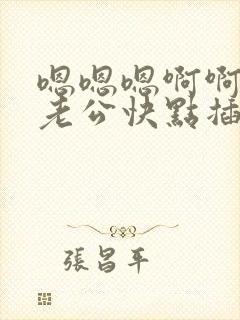 嗯嗯嗯啊啊
老公快點插
張昌平